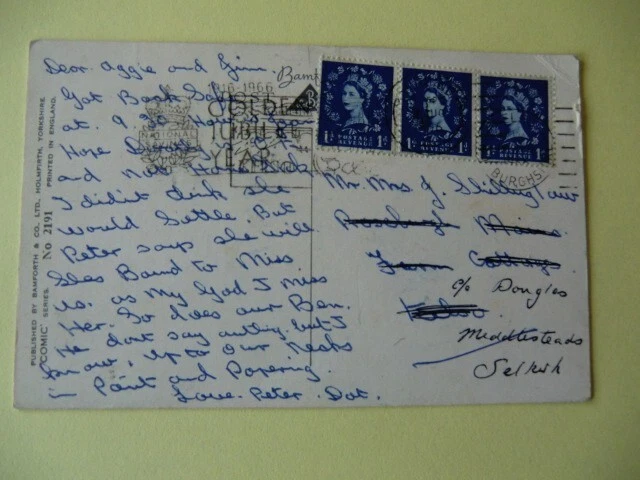 PUBLISHED BY BAMFORTH & CO., LTD., HOLMFIRTH, YORKSHIRE
"COMIC" SERIES. No 2191 PRINTED IN ENGLAND.
Dear Aggie and Jim.
Got Back
at. 9
Hope
and not
I didn't think she
would Settle. But
Peter says she will
Shes Bound to Miss
us. as My God I Miss
Her. So does our Ben.
He dont say anything but I
know. up to our Necks
in Paint and Papering.
Love. Peter. Dot.
16-1966
JUBILEE
YEAR
NATIONAL
BURGHS
1D POSTAGE REVENUE 1D
1D POSTAGE REVENUE 1D
1D POSTAGE REVENUE 1D
Mr. Mrs J.
Roxburgh Mains
Farm Cottages
Kelso
c/o Douglas
Middlesteads
Selkirk